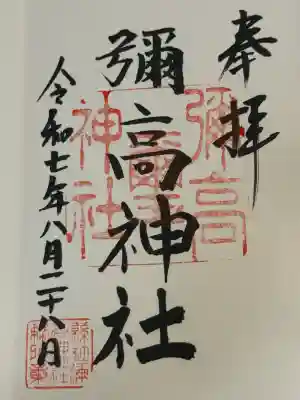 奉拝
彌高神社
令和七年八月二十八日
彌高
神社